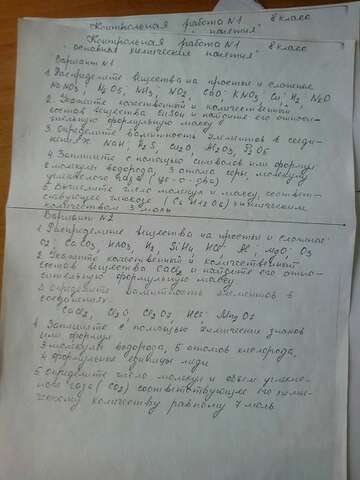 Контрольная работа N1 8 класс
Контрольная работа N1 8 класс
"основная химические понятия"
Вариант N1
1. Распределите вещества на простые и сложные
NH3, NO2, KNO3, Cu, H2, N2O
2. Укажите качественный и количественный
состав вещества и найдите его относи-
тельную формульную массу
3. Определите валентность элементов в соеди-
нениях NaH, Cu2O, Al2O3,
4. Запишите с помощью символов или формул
молекулы водорода, 3 атома серы, молекулу
углекислого газа
5. Вычислите число молекул и массу, соответ-
ствующую глюкозе (C6H12O6) химическим
количеством 3 моль
Вариант N2
1 Распределите вещества на простые и сложные:
O2; CaCO3, HNO3, H2, SiH4, HCl, MgO; O3
2. Укажите качественный и количественный
состав вещества CaCl2 и найдите его отно-
сительную формульную массу
3 определите валентность элементов в
соединениях
CaCl2, Cl2O, HCl
4 Запишите с помощью химических знаков
или формул
3 молекулы водорода, 5 атомов кислорода,
4 формульные единицы меди
5 определите число молекул и объем углекис-
лого газа (CO2) соответствующие его хими-
ческому количеству равному 7 моль